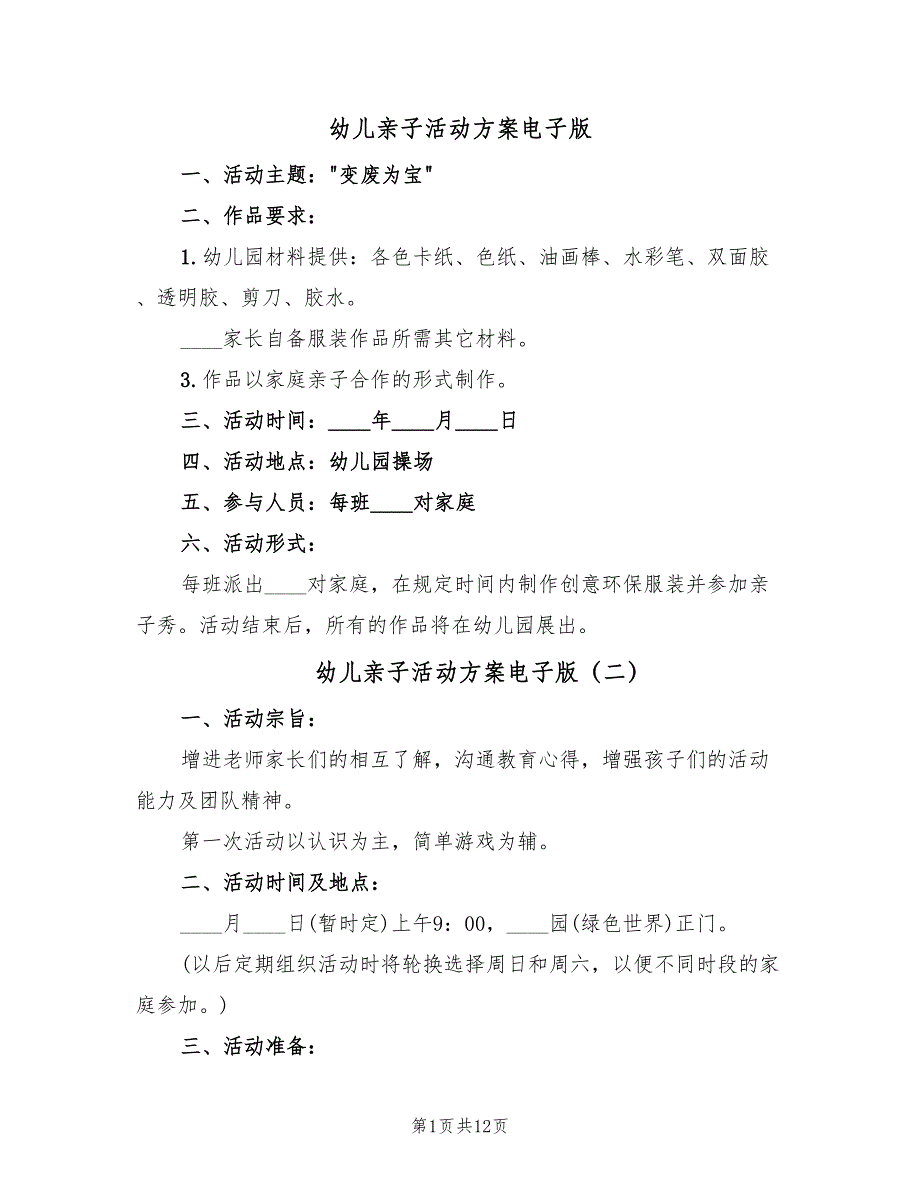 幼儿亲子活动方案电子版
一、活动主题："变废为宝"
二、作品要求：
1. 幼儿园材料提供：各色卡纸、色纸、油画棒、水彩笔、双面胶
、透明胶、剪刀、胶水。
____家长自备服装作品所需其它材料。
3. 作品以家庭亲子合作的形式制作。
三、活动时间：____年____月____日
四、活动地点：幼儿园操场
五、参与人员：每班____对家庭
六、活动形式：
每班派出____对家庭，在规定时间内制作创意环保服装并参加亲
子秀。活动结束后，所有的作品将在幼儿园展出。
幼儿亲子活动方案电子版（二）
一、活动宗旨：
增进老师家长们的相互了解，沟通教育心得，增强孩子们的活动
能力及团队精神。
第一次活动以认识为主，简单游戏为辅。
二、活动时间及地点：
____月____日(暂时定)上午9：00，____园(绿色世界)正门。
(以后定期组织活动时将轮换选择周日和周六，以便不同时段的家
庭参加。)
三、活动准备：
第1页共12页